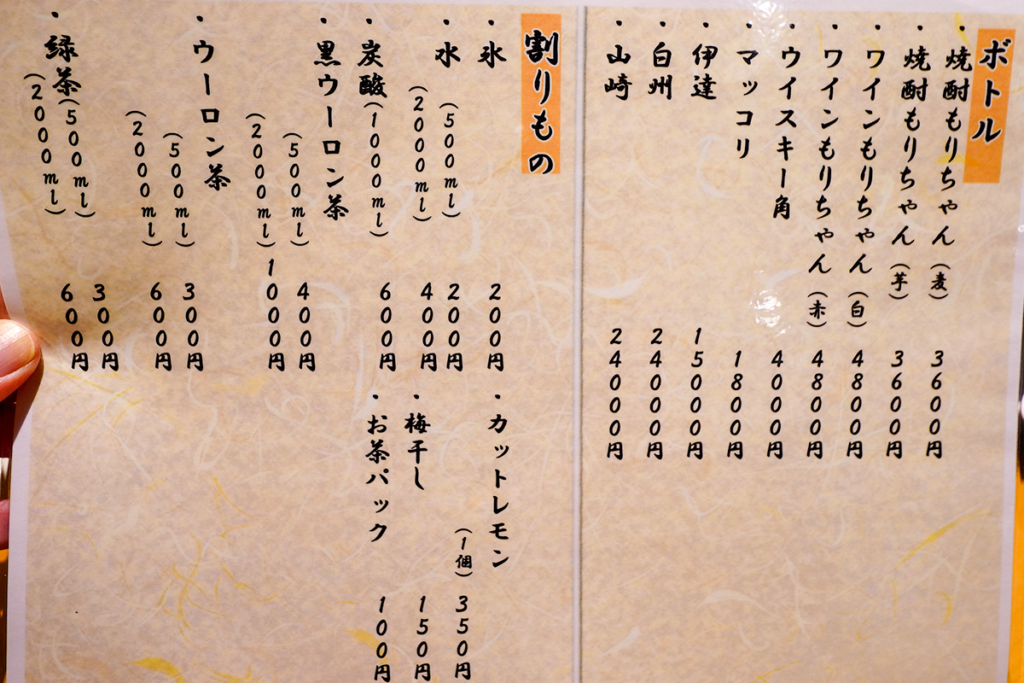 ボトル
・焼酎もりちゃん（麦） 3600円
・焼酎もりちゃん（芋） 3600円
・ワインもりちゃん（白） 4800円
・ワインもりちゃん（赤） 4800円
・ウイスキー角 4000円
・マッコリ 1800円
・伊達 15000円
・白州 24000円
・山崎 24000円
割りもの
・氷 200円
・水（500ml） 200円
（2000ml） 400円
・炭酸（1000ml） 600円
・黒ウーロン茶
（500ml） 400円
（2000ml） 1000円
・ウーロン茶
（500ml） 300円
（2000ml） 600円
・緑茶（500ml） 300円
（2000ml） 600円
・カットレモン
（1個） 350円
・梅干し 150円
・お茶パック 100円